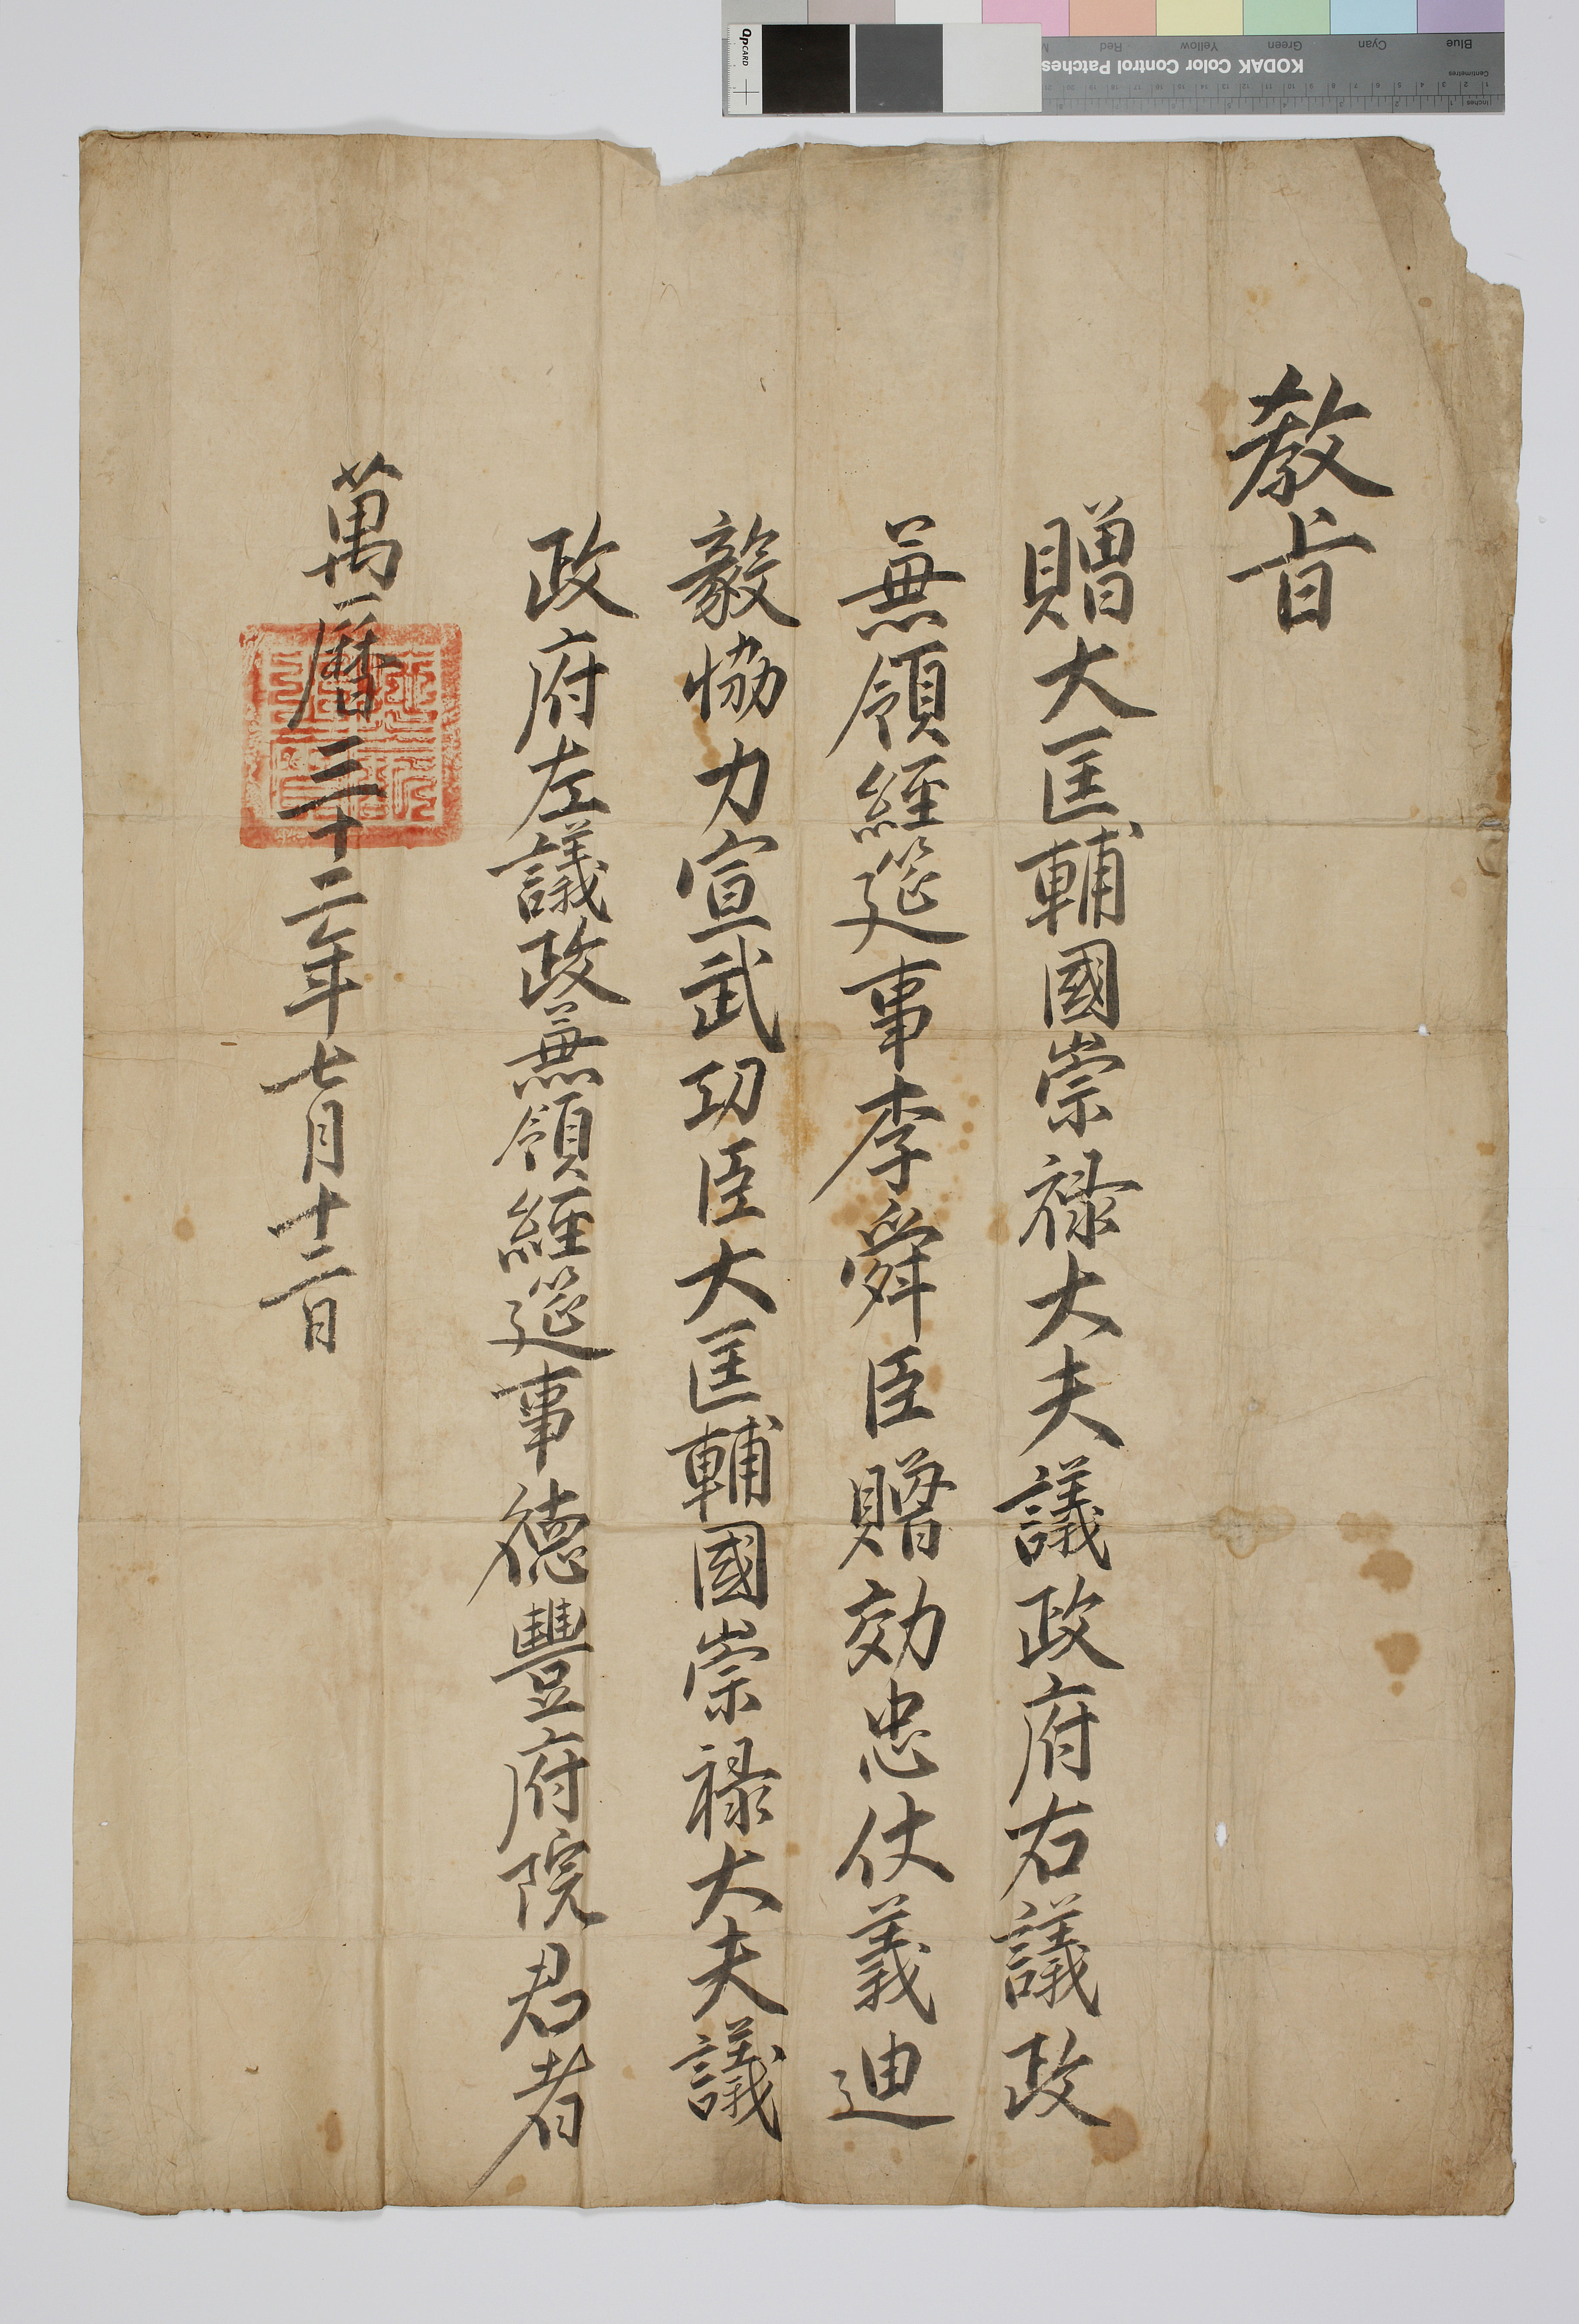 教旨
贈大匡輔國崇祿大夫議政府右議政
兼領經筵事李舜臣贈効忠仗義迪
毅恊力宣武功臣大匡輔國崇祿大夫議
政府左議政兼領經筵事德豐府院君者
萬曆三十二年七月十二日
QPCARD
KODAK Color Control Patches
Blue Cyan Green Yellow Red
Centimetres
inches